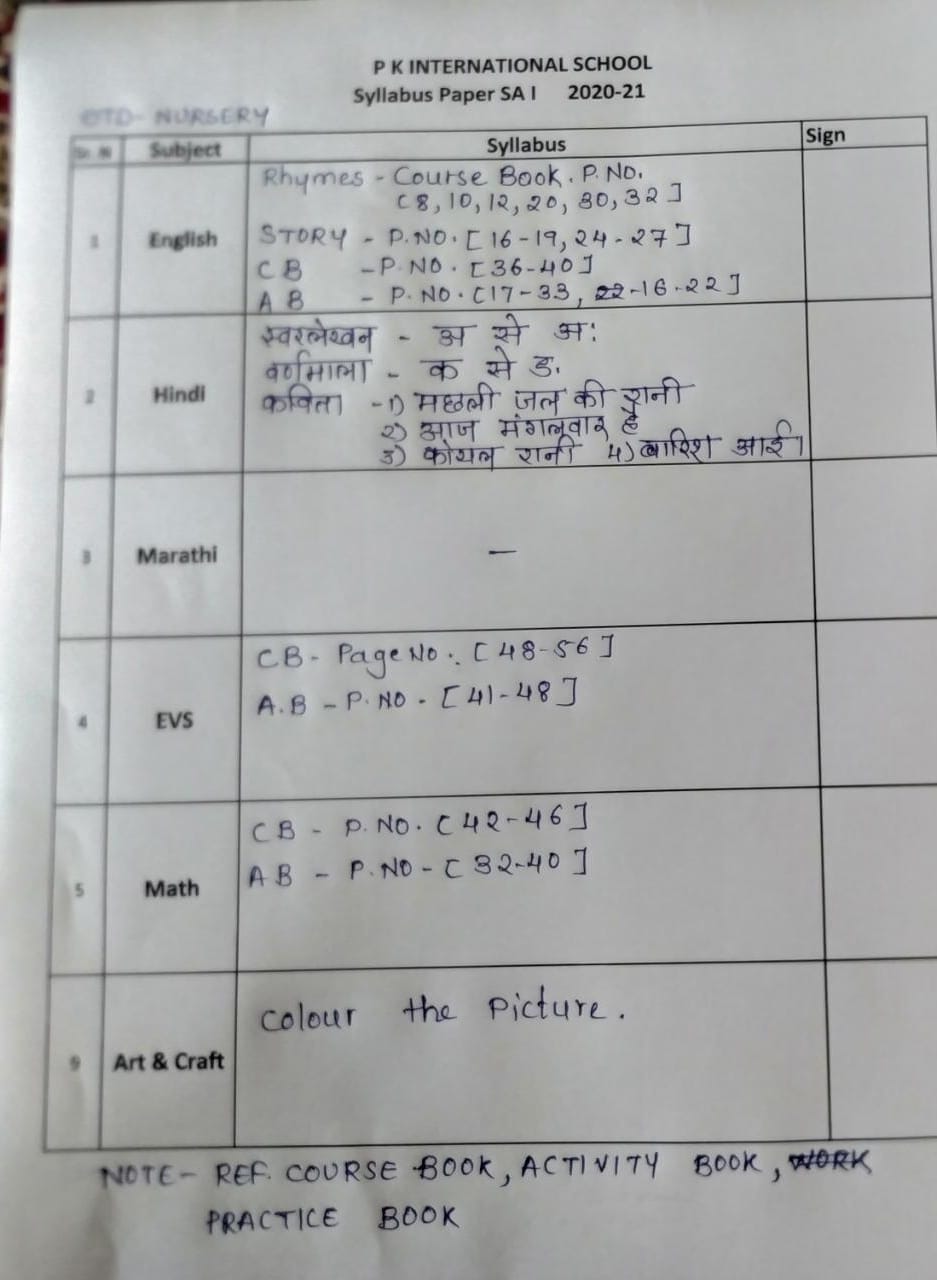 P K INTERNATIONAL SCHOOL
Syllabus Paper SA I 2020-21
STD- NURSERY
Sr. N Subject Syllabus Sign
1 English
Rhymes - Course Book. P. NO.
[8, 10, 12, 20, 30, 32]
STORY - P.NO. [16-19, 24-27]
CB - P. NO. [36-40]
AB - P. NO. [17-33, 22-16-22]
2 Hindi
स्वरलेखन - अ से अः
वर्णमाला - क से ङ.
कविता -1) मछली जल की रानी
2) आज मंगलवार है
3) कोयल रानी 4) बारिश आई।
3 Marathi —
4 EVS
CB - Page No. [48-56]
A.B - P. NO - [41-48]
5 Math
CB - P. NO. [42-46]
AB - P. NO - [32-40]
9 Art & Craft
Colour the Picture.
NOTE- REF. COURSE BOOK, ACTIVITY BOOK, WORK
PRACTICE BOOK